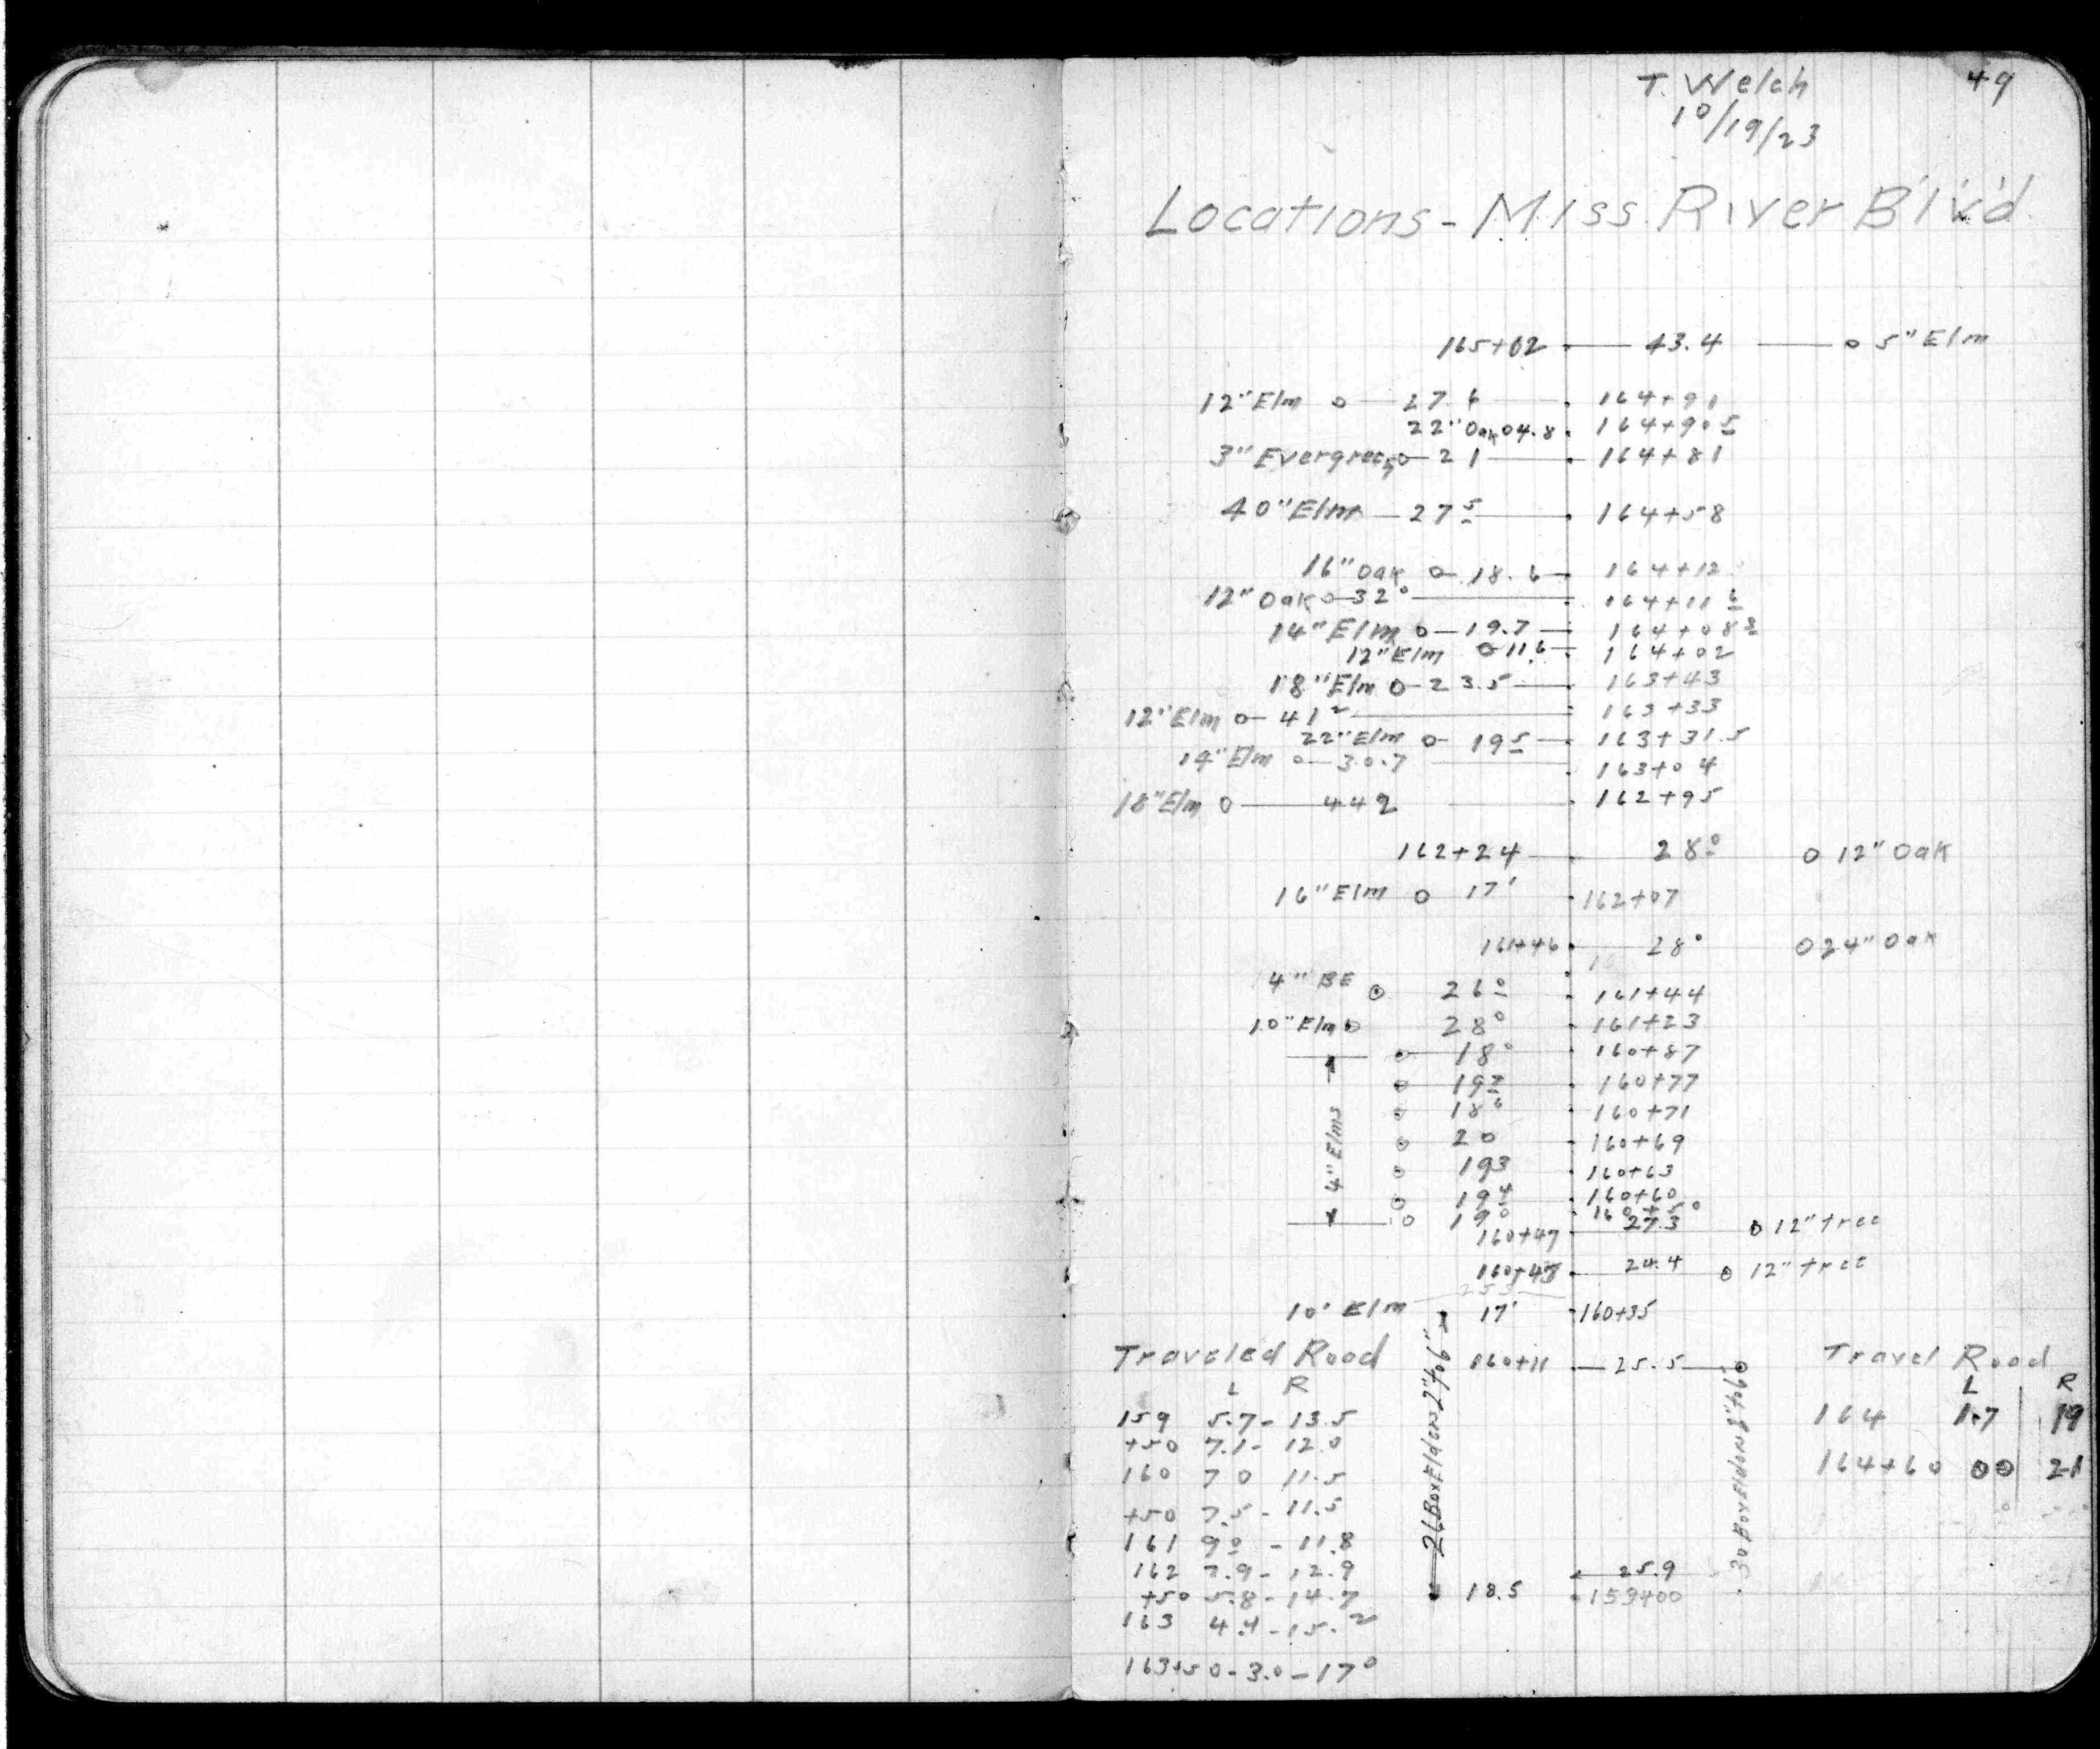 T. Welch 49
10/19/23
Locations - Miss. River B'l'v'd.
165+02 43.4 5" Elm
12" Elm 27.6 164+91
22" Oak 4.8 164+90 5
3" Evergreen 21 164+81
40" Elm 27 5 164+58
16" Oak 18.6 164+12
12" Oak 32 0 164+11 6
14" Elm 19.7 164+08 3
12" Elm 11.6 164+02
18" Elm 23.5 163+43
12" Elm 41 2 163+33
22" Elm 19 5 163+31.5
14" Elm 30.7 163+04
18" Elm 44 2 162+95
162+24 28 0 12" Oak
16" Elm 17' 162+07
161+46 28 0 24" Oak
4" BE 26 0 161+44
10" Elm 28 0 161+23
18 0 160+87
19 2 160+77
18 6 160+71
4" Elms
20 160+69
19 3 160+63
19 4 160+60
19 0 160+50
160+47 27.3 12" tree
24.4 12" tree
10" Elm 17' 160+35
Traveled Road 160+11 25.5 Travel Road
L R L R
159 5.7 - 13.5 164 1.7 19
+50 7.1 - 12.0
160 7 0 11.5 164+60 00 21
+50 7.5 - 11.5
161 9 0 - 11.8
26 Box Elders 2" to 6"
30 Box Elders 2" to 6"
162 7.9 - 12.9 25.9
+50 5.8 - 14.7 18.5 159+00
163 4.4 - 15.2
163+50 - 3.0 - 17 0